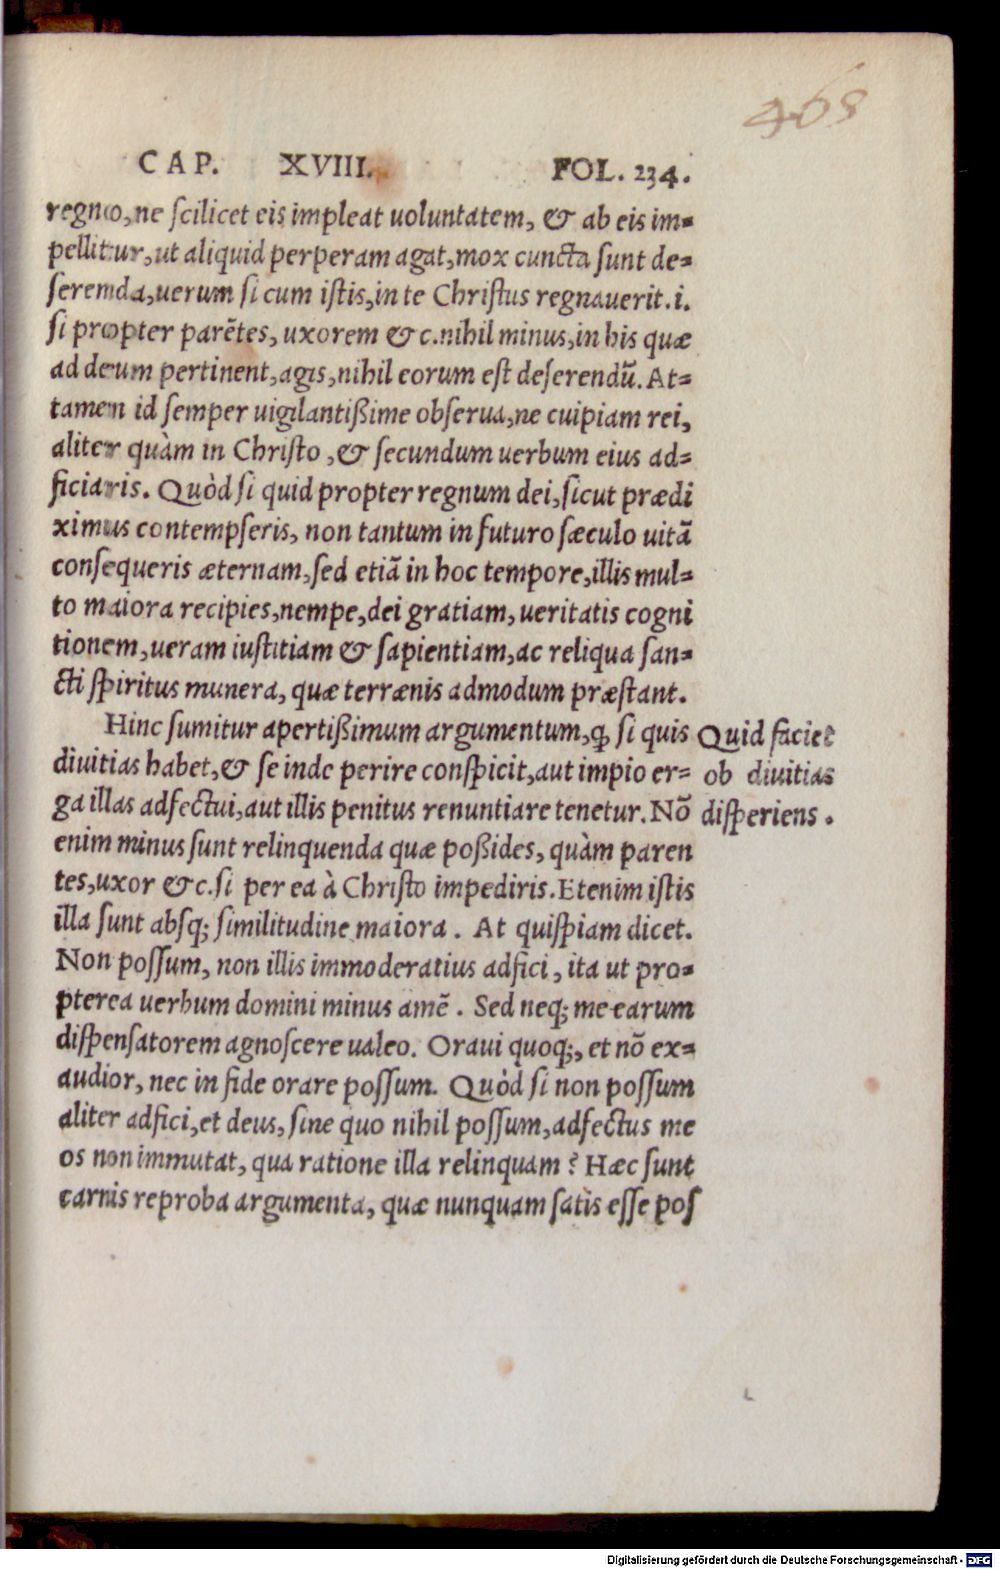 468
CAP. XVIII. FOL. 234.
regno, ne scilicet eis impleat uoluntatem, & ab eis im-
pellitur, ut aliquid perperam agat, mox cuncta sunt de-
serenda, uerum si cum istis, in te Christus regnauerit. i.
si propter parẽtes, uxorem & c. nihil minus, in his quæ
ad deum pertinent, agis, nihil eorum est deserendũ. At-
tamen id semper uigilantißime obserua, ne cuipiam rei,
aliter quàm in Christo, & secundum uerbum eius ad-
ficiaris. Quòd si quid propter regnum dei, sicut prædi
ximus contempseris, non tantum in futuro sæculo uitã
consequeris æternam, sed etiã in hoc tempore, illis mul-
to maiora recipies, nempe, dei gratiam, ueritatis cogni
tionem, ueram iustitiam & sapientiam, ac reliqua san-
cti spiritus munera, quæ terrænis admodum præstant.
Hinc sumitur apertißimum argumentum, ꝙ si quis
diuitias habet, & se inde perire conspicit, aut impio er-
ga illas adfectui, aut illis penitus renuntiare tenetur. Nõ
enim minus sunt relinquenda quæ poßides, quàm paren
tes, uxor & c. si per ea à Christo impediris. Etenim istis
illa sunt absq; similitudine maiora. At quispiam dicet.
Non possum, non illis immoderatius adfici, ita ut pro-
pterea uerbum domini minus amẽ. Sed neq; me earum
dispensatorem agnoscere ualeo. Oraui quoq;, et nõ ex-
audior, nec in fide orare possum. Quòd si non possum
aliter adfici, et deus, sine quo nihil possum, adfectus me
os non immutat, qua ratione illa relinquam? Hæc sunt
carnis reproba argumenta, quæ nunquam satis esse pos
Quid faciet
ob diuitias
disperiens.
Digitalisierung gefördert durch die Deutsche Forschungsgemeinschaft - DFG